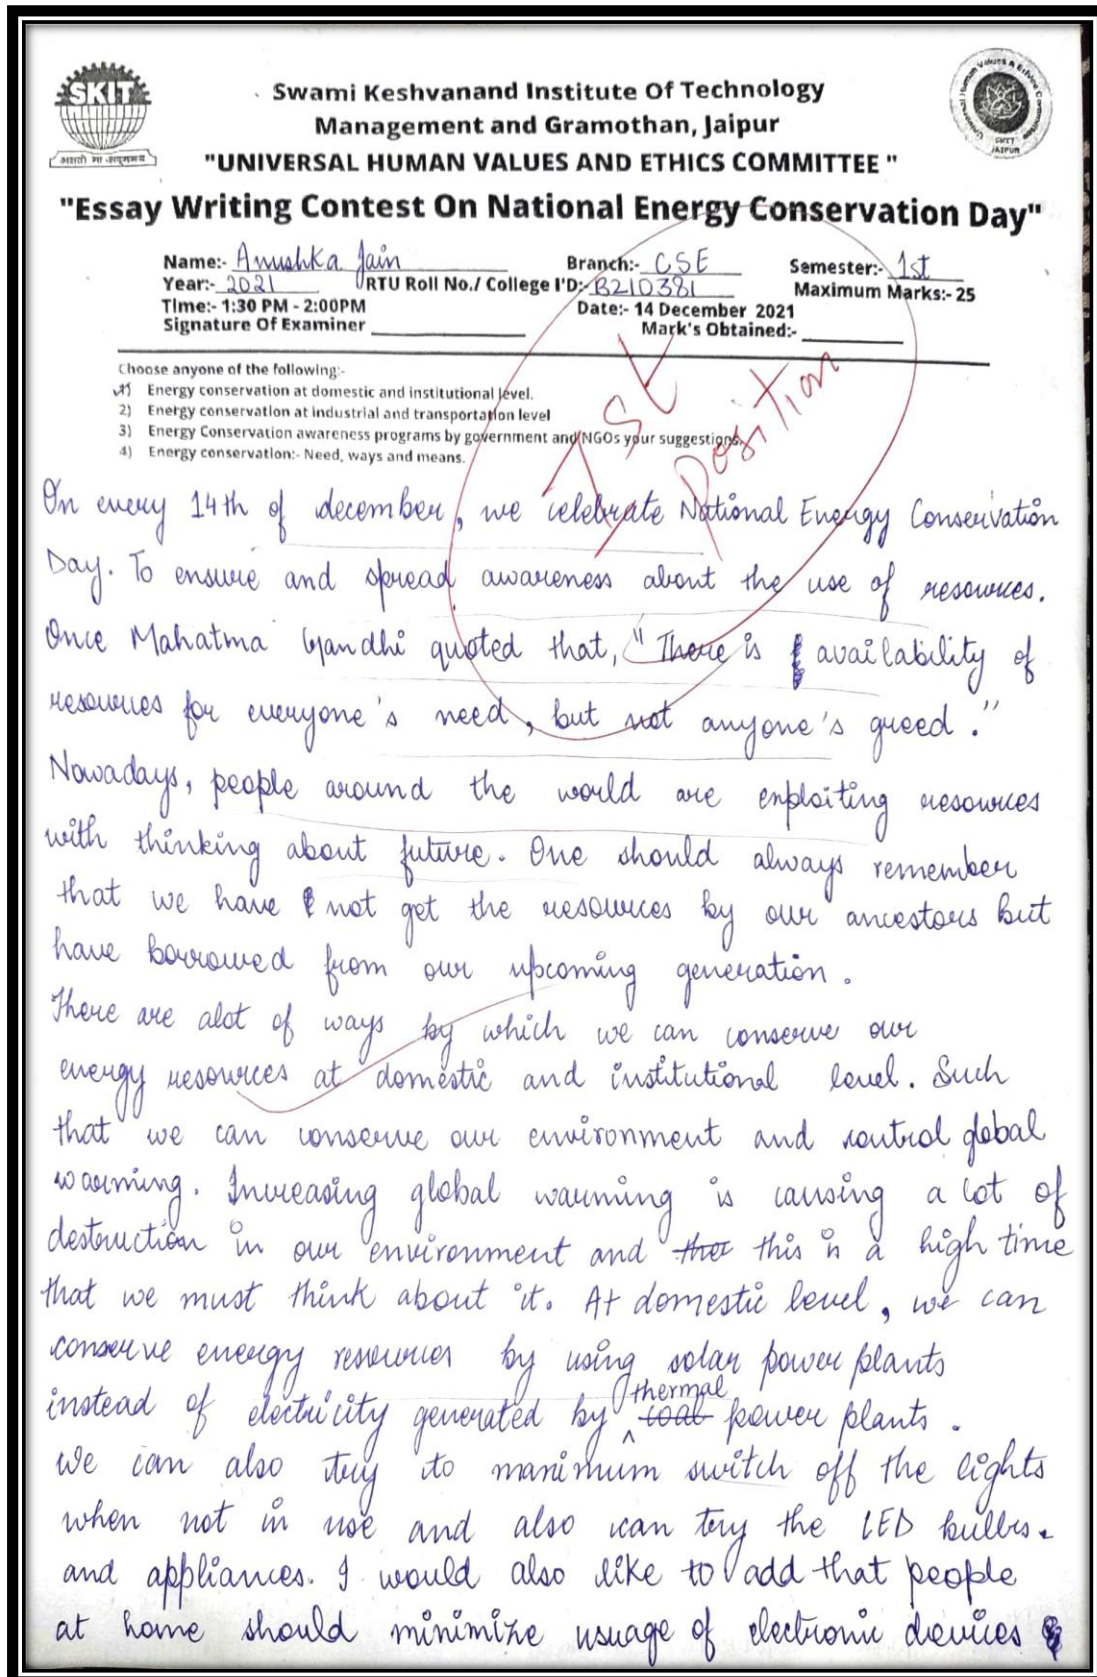 SKIT
असतो मा सद्गमय
Swami Keshvanand Institute Of Technology
Management and Gramothan, Jaipur
"UNIVERSAL HUMAN VALUES AND ETHICS COMMITTEE "
Universal Human Values & Ethics Committee
SKIT
JAIPUR
"Essay Writing Contest On National Energy Conservation Day"
Name:- Anushka Jain Branch:- CSE Semester:- 1st
Year:- 2021 RTU Roll No./ College I'D:- B210381 Maximum Marks:- 25
Time:- 1:30 PM - 2:00PM Date:- 14 December 2021
Signature Of Examiner Mark's Obtained:-
1st
position
Choose anyone of the following:-
1) Energy conservation at domestic and institutional level.
2) Energy conservation at industrial and transportation level
3) Energy Conservation awareness programs by government and NGOs your suggestions.
4) Energy conservation:- Need, ways and means.
On every 14th of december, we celebrate National Energy Conservation
Day. To ensure and spread awareness about the use of resources.
Once Mahatma Gandhi quoted that, "There is availability of
resources for everyone's need, but not anyone's greed."
Nowadays, people around the world are exploiting resources
with thinking about future. One should always remember
that we have not get the resources by our ancestors but
have borrowed from our upcoming generation.
There are alot of ways by which we can conserve our
energy resources at domestic and institutional level. Such
that we can conserve our environment and control global
warming. Increasing global warming is causing a lot of
destruction in our environment and this is a high time
that we must think about it. At domestic level, we can
conserve energy resources by using solar power plants
instead of electricity generated by thermal coal power plants.
We can also try to maximum switch off the lights
when not in use and also can try the LED bulbs.
and appliances. I would also like to add that people
at home should minimize usuage of electronic devices